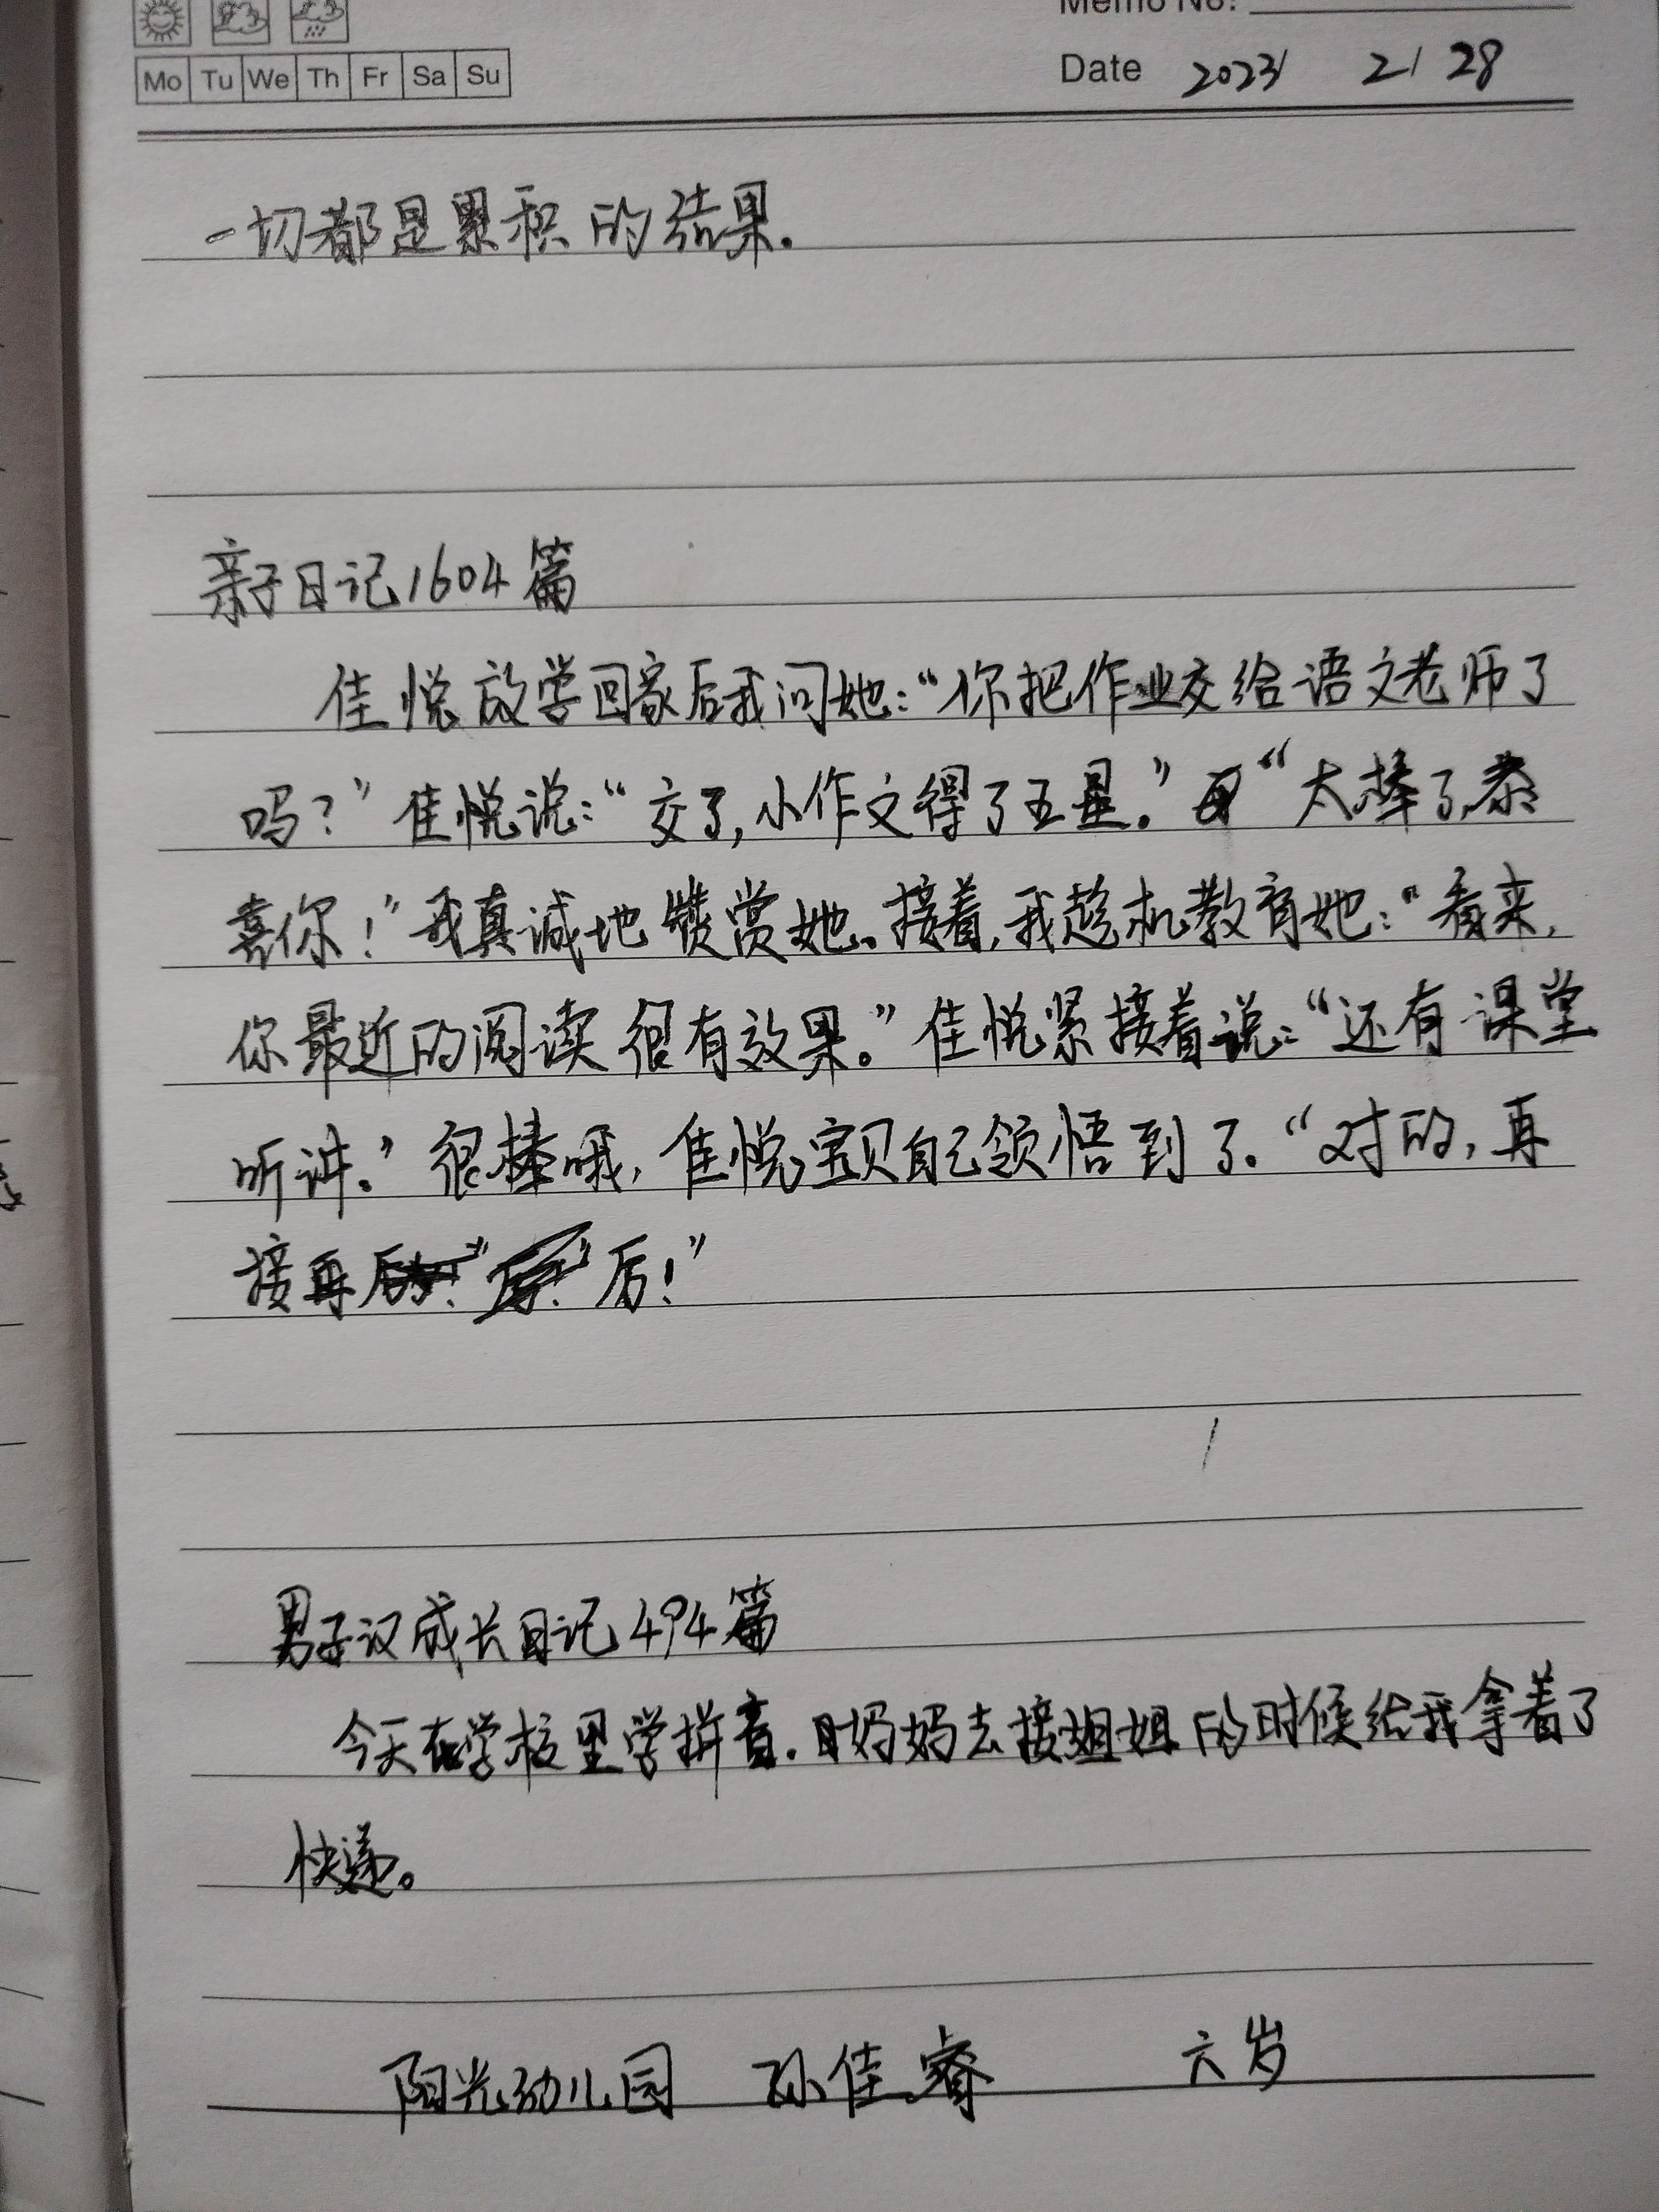 Memo No.
Mo Tu We Th Fr Sa Su
Date 2023/ 2/ 28
一切都是累积的结果.
亲子日记1604篇
佳悦放学回家后我问她:“你把作业交给语文老师了
吗?”佳悦说:“交了,小作文得了五星。”“太棒了,恭
喜你!”我真诚地赞赏她。接着,我趁机教育她:“看来,
你最近的阅读很有效果。”佳悦紧接着说:“还有课堂
听讲。”很棒哦,佳悦宝贝自己领悟到了.“对的,再
接再厉!”
男子汉成长日记494篇
今天在学校里学拼音.妈妈去接姐姐的时候给我拿着了
快递。
阳光幼儿园 孙佳睿 六岁